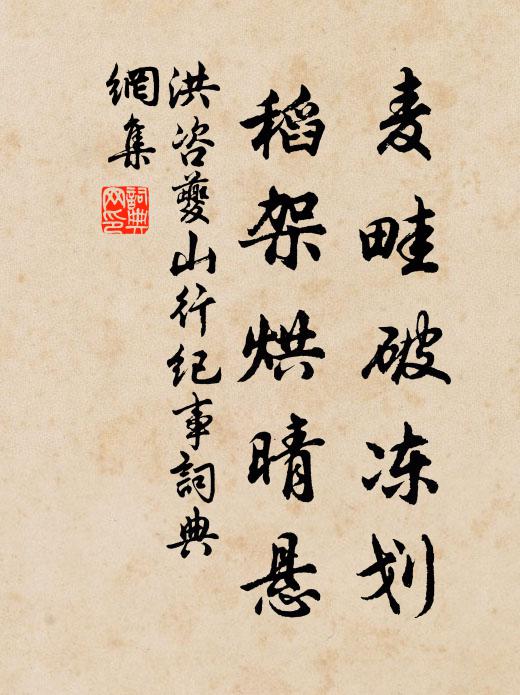 麦畦破冻划
稻架烘晴悬
洪咨夔山行纪事詞典
網集
詞典
网印